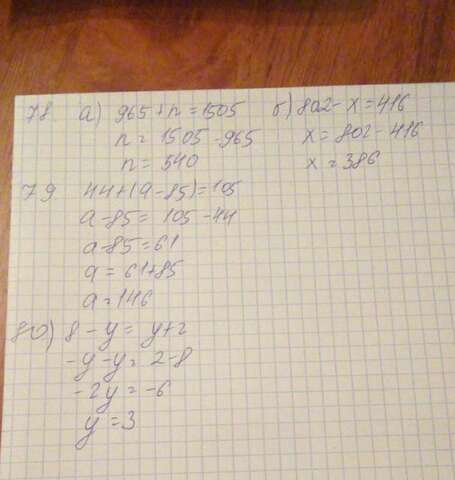 78 а) 965 + n = 1505 б) 802 - x = 416
n = 1505 - 965 x = 802 - 416
n = 540 x = 386
79 44 + (a - 85) = 105
a - 85 = 105 - 44
a - 85 = 61
a = 61 + 85
a = 146
80) 8 - y = y + 2
-y - y = 2 - 8
-2y = -6
y = 3